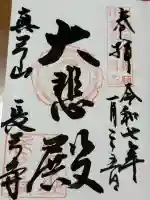 奉拝
令和七年
一月二五日
大悲殿
真弓山
長弓寺